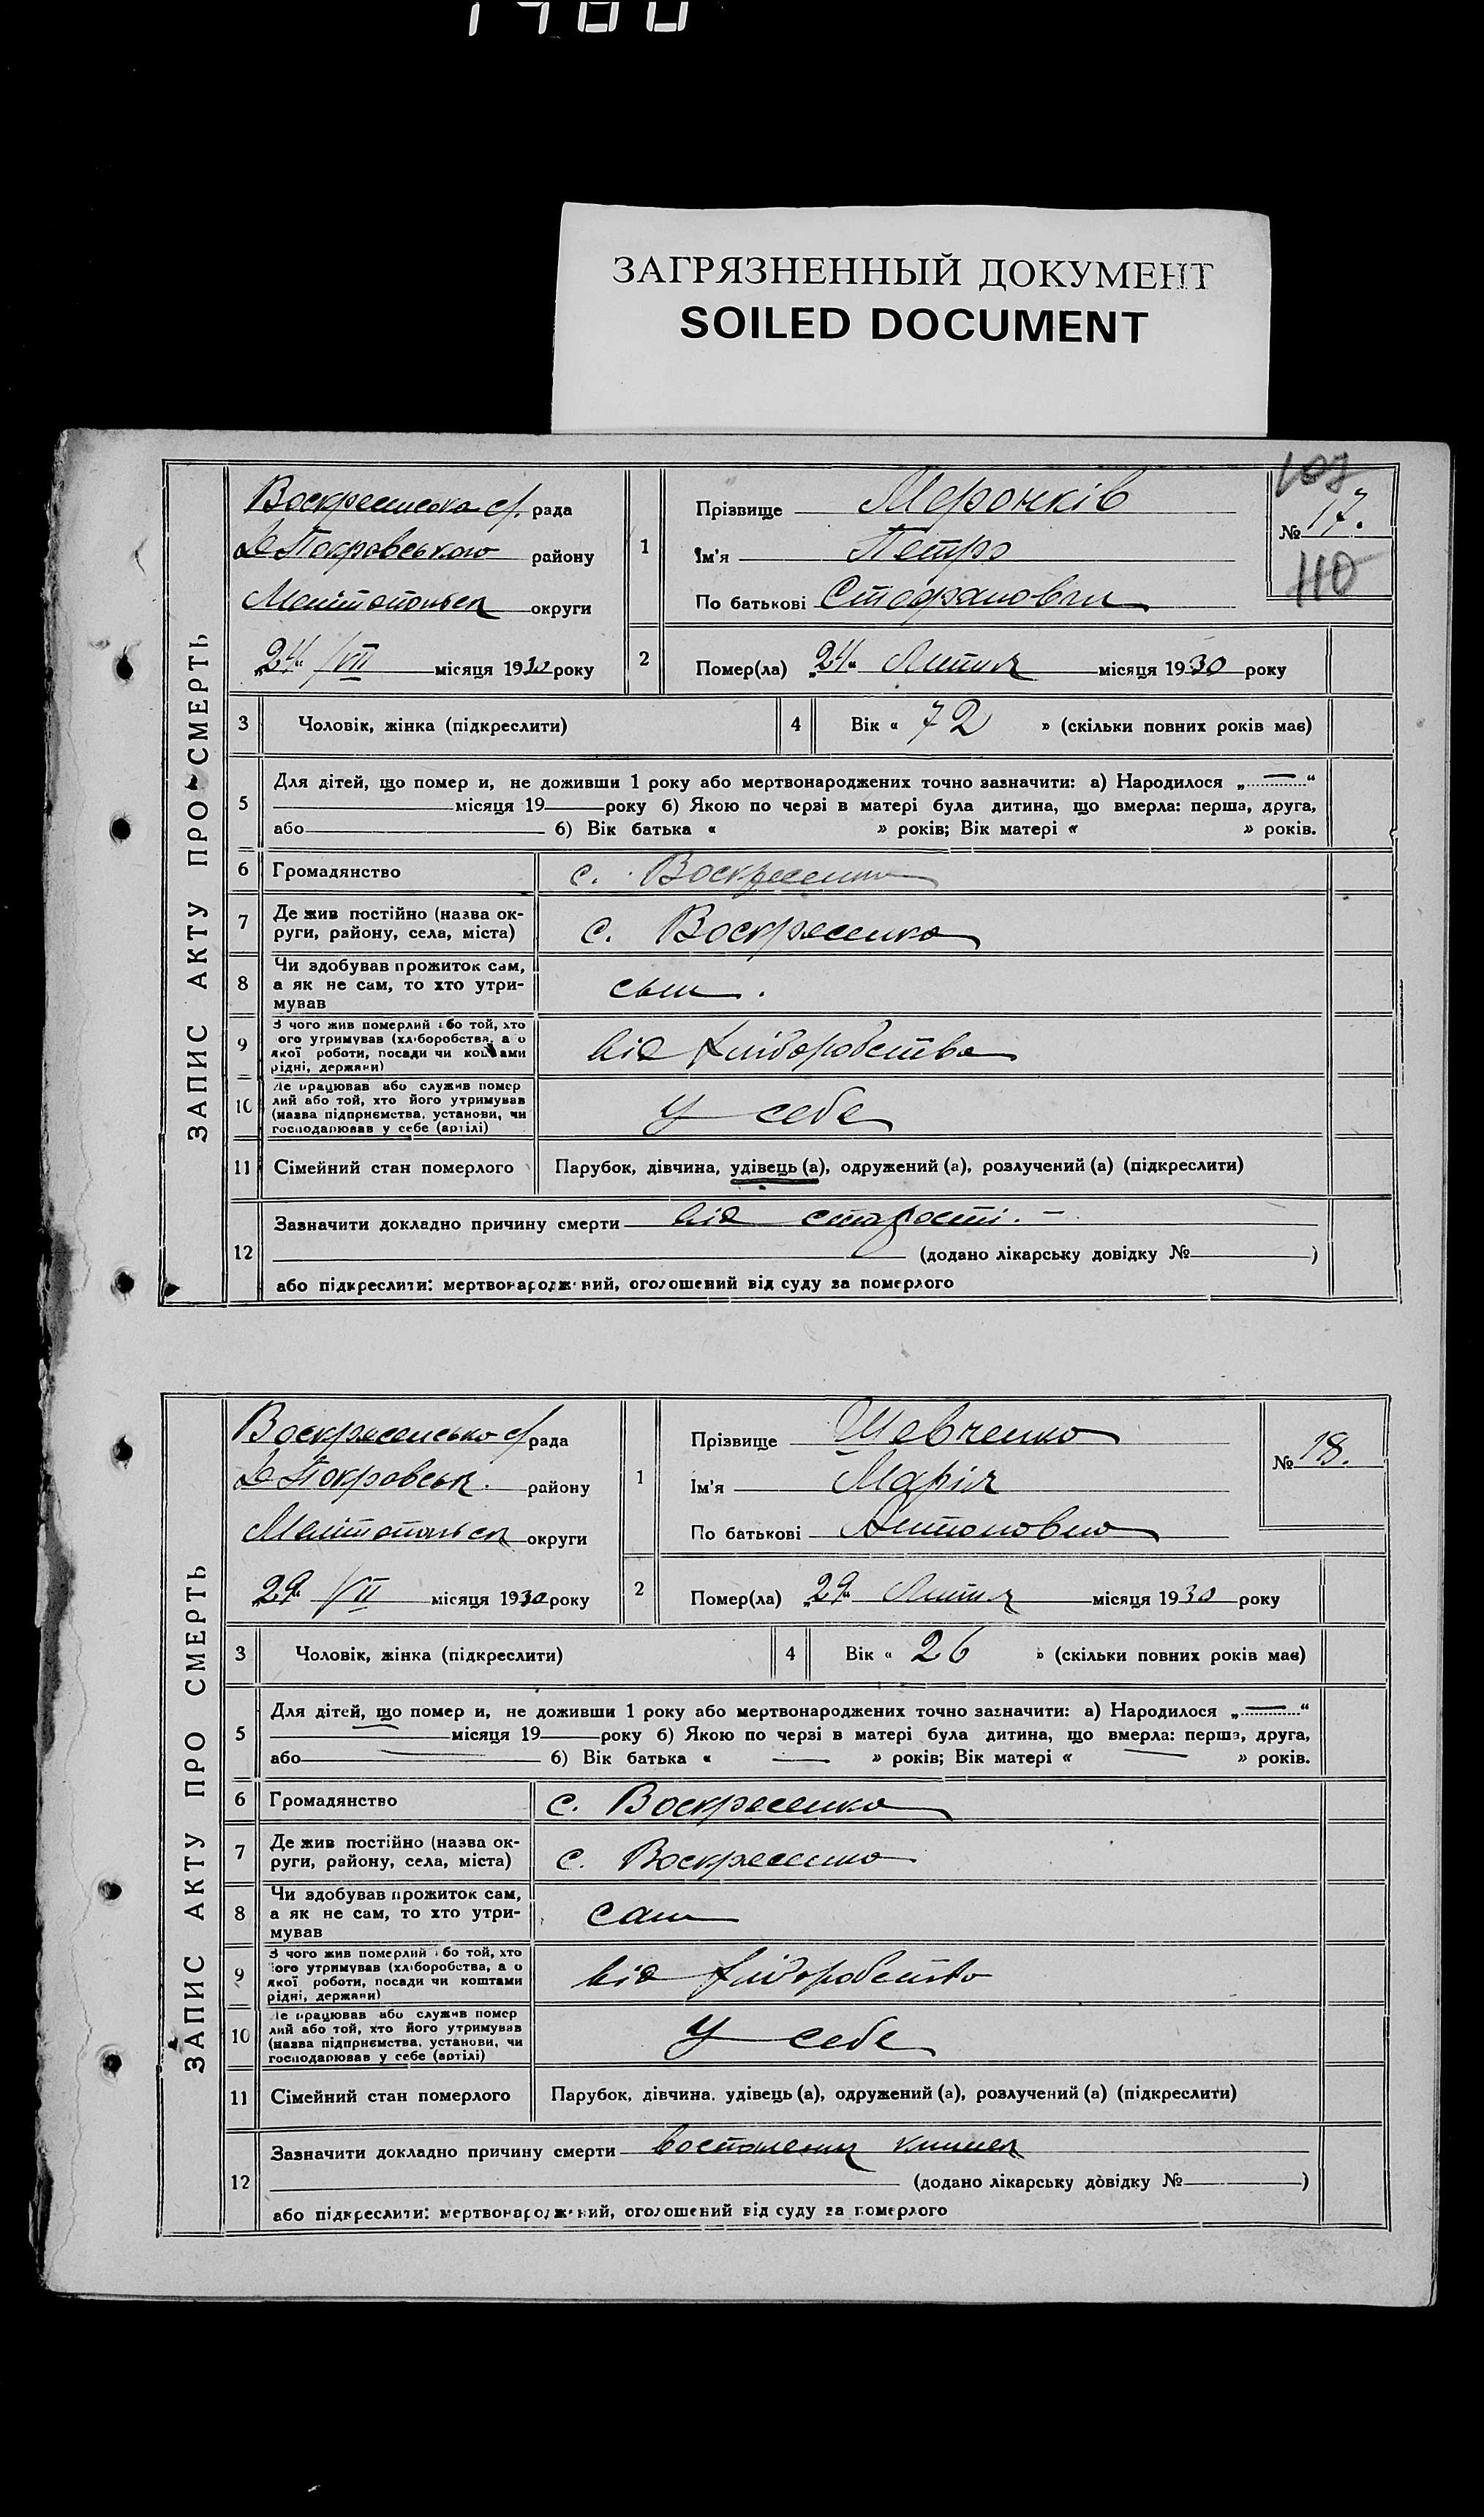 ЗАГРЯЗНЕННЫЙ ДОКУМЕНТ
SOILED DOCUMENT
ЗАПИС АКТУ ПРО СМЕРТЬ
рада
району
округи
24 VII місяця 1930 року
1
Прізвище
Ім'я Петро
По батькові Стефанович
№ 17.
110
2
Помер(ла) „24“ Липня місяця 1930 року
3 Чоловік, жінка (підкреслити)
4 Вік « 72 » (скільки повних років має)
5 Для дітей, що помер и, не доживши 1 року або мертвонароджених точно зазначити: а) Народилося „ — “
місяця 19 року б) Якою по черзі в матері була дитина, що вмерла: перша, друга,
або б) Вік батька « » років; Вік матері « » років.
6 Громадянство с. Воскресенка
7 Де жив постійно (назва ок-
руги, району, села, міста) с. Воскресенка
8 Чи здобував прожиток сам,
а як не сам, то хто утри-
мував
9 З чого жив померлий або той, хто
ого утримував (хліборобства, а о
якої роботи, посади чи коштами
рідні, держави) від хліборобства
10 Де працював або служив помер
лий або той, хто його утримував
(назва підприємства, установи, чи
господарював у себе (артілі) У себе
11 Сімейний стан померлого Парубок, дівчина, удівець (а), одружений (а), розлучений (а) (підкреслити)
12 Зазначити докладно причину смерти від старости. –
(додано лікарську довідку № )
або підкреслити: мертвонароджений, оголошений від суду за померлого
ЗАПИС АКТУ ПРО СМЕРТЬ
рада
району
округи
29 VII місяця 1930 року
1
Прізвище Шевченко
Ім'я Марія
По батькові Антоновна
№ 18.
2
Помер(ла) „29“ Липня місяця 1930 року
3 Чоловік, жінка (підкреслити)
4 Вік « 26 » (скільки повних років має)
5 Для дітей, що помер и, не доживши 1 року або мертвонароджених точно зазначити: а) Народилося „ — “
місяця 19 року б) Якою по черзі в матері була дитина, що вмерла: перша, друга,
або б) Вік батька « — » років; Вік матері « — » років.
6 Громадянство с. Воскресенка
7 Де жив постійно (назва ок-
руги, району, села, міста) с. Воскресенка
8 Чи здобував прожиток сам,
а як не сам, то хто утри-
мував сам
9 З чого жив померлий або той, хто
ого утримував (хліборобства, а о
якої роботи, посади чи коштами
рідні, держави) від хліборобства
10 Де працював або служив помер
лий або той, хто його утримував
(назва підприємства, установи, чи
господарював у себе (артілі) У себе
11 Сімейний стан померлого Парубок, дівчина, удівець (а), одружений (а), розлучений (а) (підкреслити)
12 Зазначити докладно причину смерти воспаления кишек
(додано лікарську довідку № )
або підкреслити: мертвонароджений, оголошений від суду за померлого